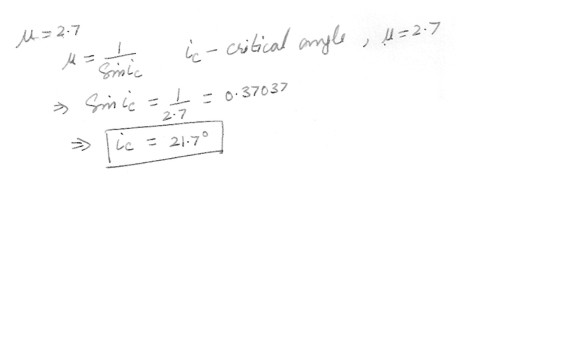 μ = 2.7
μ = 1/Sin ic   ic - critical angle, μ = 2.7
⇒ Sin ic = 1/2.7 = 0.37037
⇒ ic = 21.7°